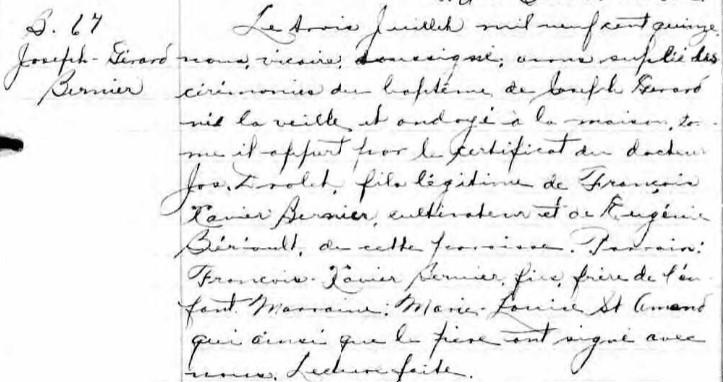 B. 67
Joseph-Gérard
Bernier
Le trois Juillet mil neuf cent quinze,
nous, vicaire, soussigné, avons suplié des
cérémonies du baptême de Joseph Gerard
né la veille et ondoyé à la maison, co-
me il appert par le certificat du docteur
Jos. fils légitime de François
Xavier Bernier, cultivateur et de Eugénie
Bériault, de cette paroisse. Parrain:
François-Xavier Bernier, fils, frère de l'en-
fant. Marraine: Marie-Louise St Amand
qui ainsi que le père ont signé avec
nous. Lecture faite.